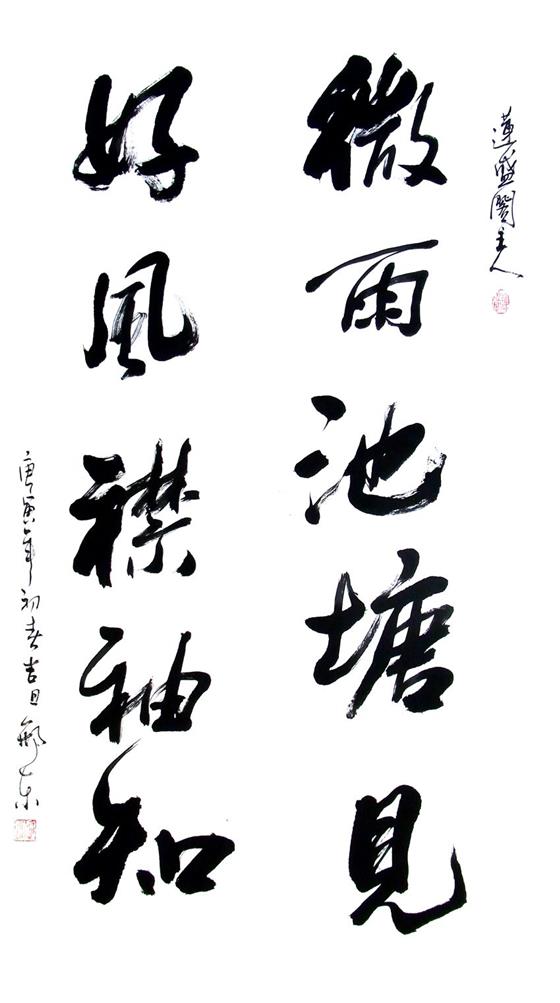 蓮盛閣主人
微雨池塘見
好風襟袖知
庚寅年初春吉日